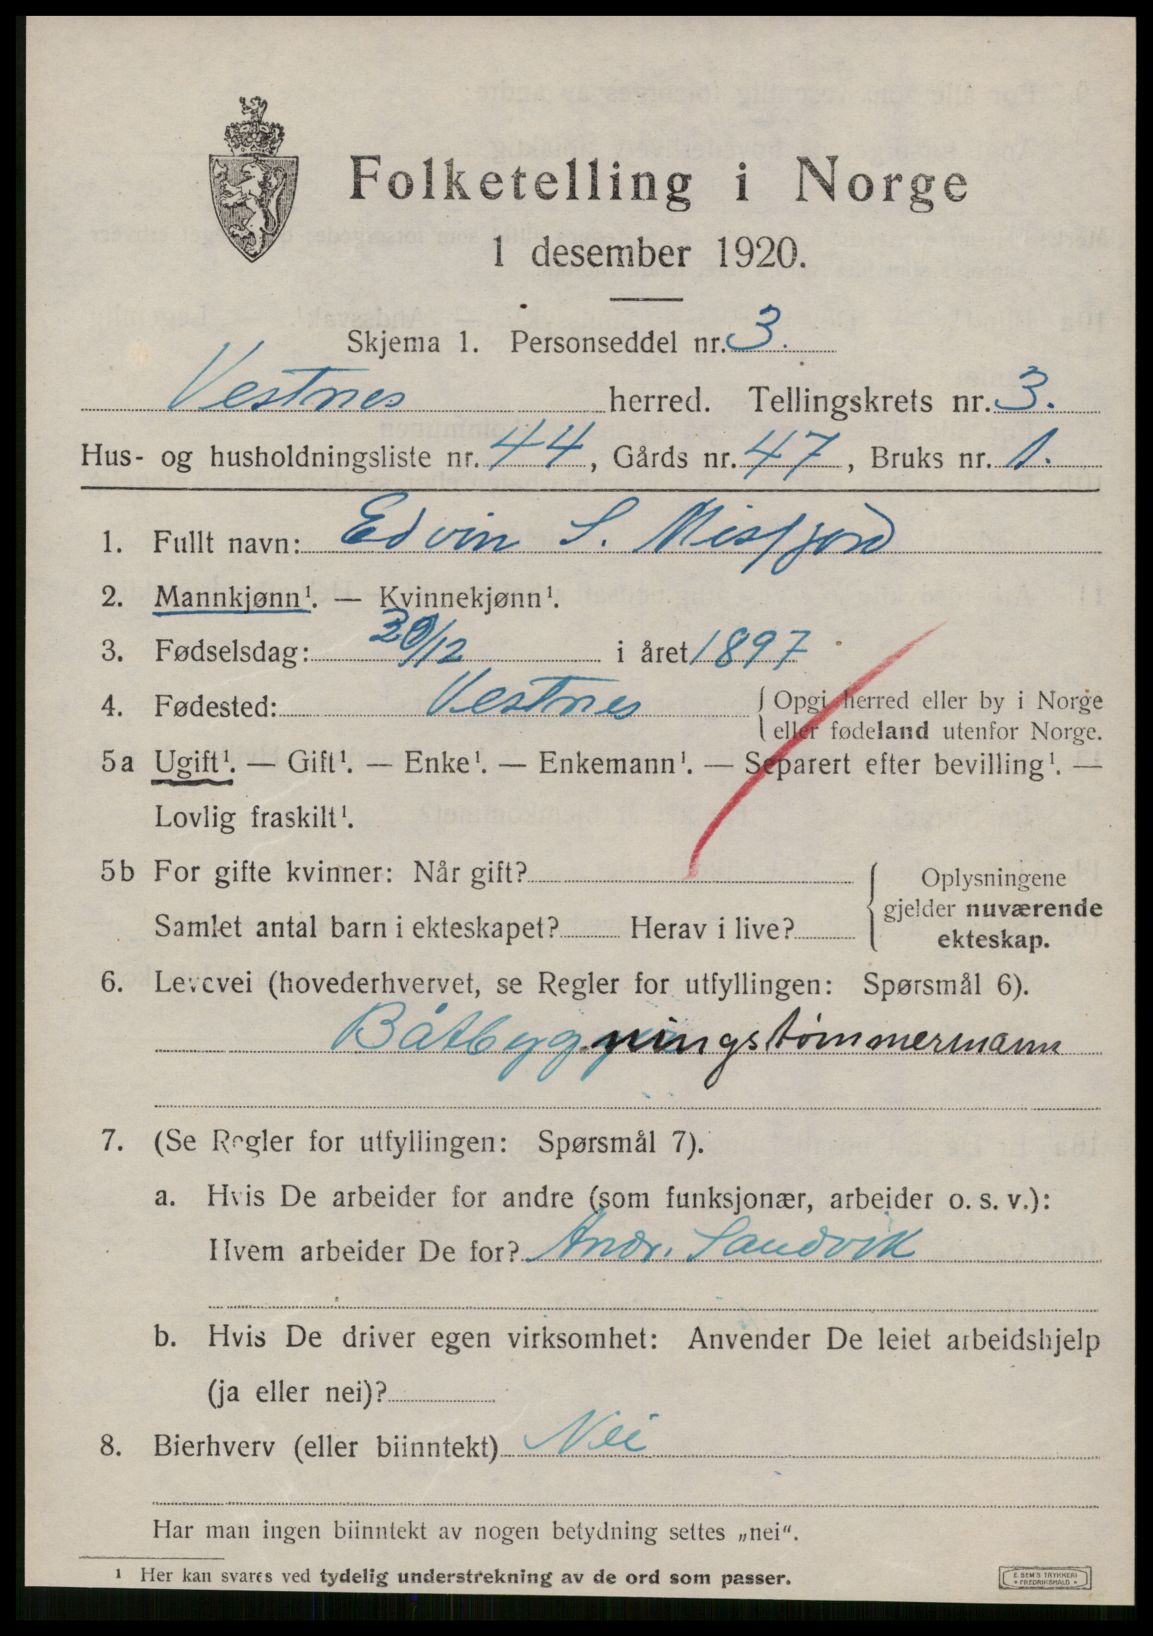 Folketelling i Norge
1 desember 1920.
Skjema 1. Personseddel nr. 3.
Vestnes herred. Tellingskrets nr. 3.
Hus- og husholdningsliste nr. 44, Gårds nr. 47, Bruks nr. 1.
1. Fullt navn: Edvin S. Misfjord
2. Mannkjønn¹. — Kvinnekjønn¹.
3. Fødselsdag: /12 i året 1897
4. Fødested: Vestnes { Opgi herred eller by i Norge
eller fødeland utenfor Norge.
5a Ugift¹. — Gift¹. — Enke¹. — Enkemann¹. — Separert efter bevilling¹. —
Lovlig fraskilt¹.
5b For gifte kvinner: Når gift?
Samlet antal barn i ekteskapet? Herav i live?
{ Oplysningene
gjelder nuværende
ekteskap.
6. Levevei (hovederhvervet, se Regler for utfyllingen: Spørsmål 6).
Båtbygningstømmermann
7. (Se Regler for utfyllingen: Spørsmål 7).
a. Hvis De arbeider for andre (som funksjonær, arbeider o. s. v.):
Hvem arbeider De for? Andr. Sandvik
b. Hvis De driver egen virksomhet: Anvender De leiet arbeidshjelp
(ja eller nei)?
8. Bierhverv (eller biinntekt) Nei
Har man ingen biinntekt av nogen betydning settes „nei“.
¹ Her kan svares ved tydelig understrekning av de ord som passer.
E. SEM'S TRYKKERI
• FREDRIKSHALD •